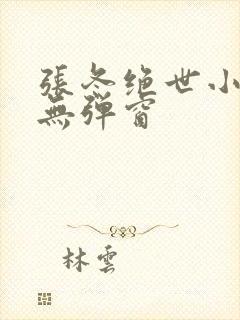 張冬绝世小
無弹窗
林雲